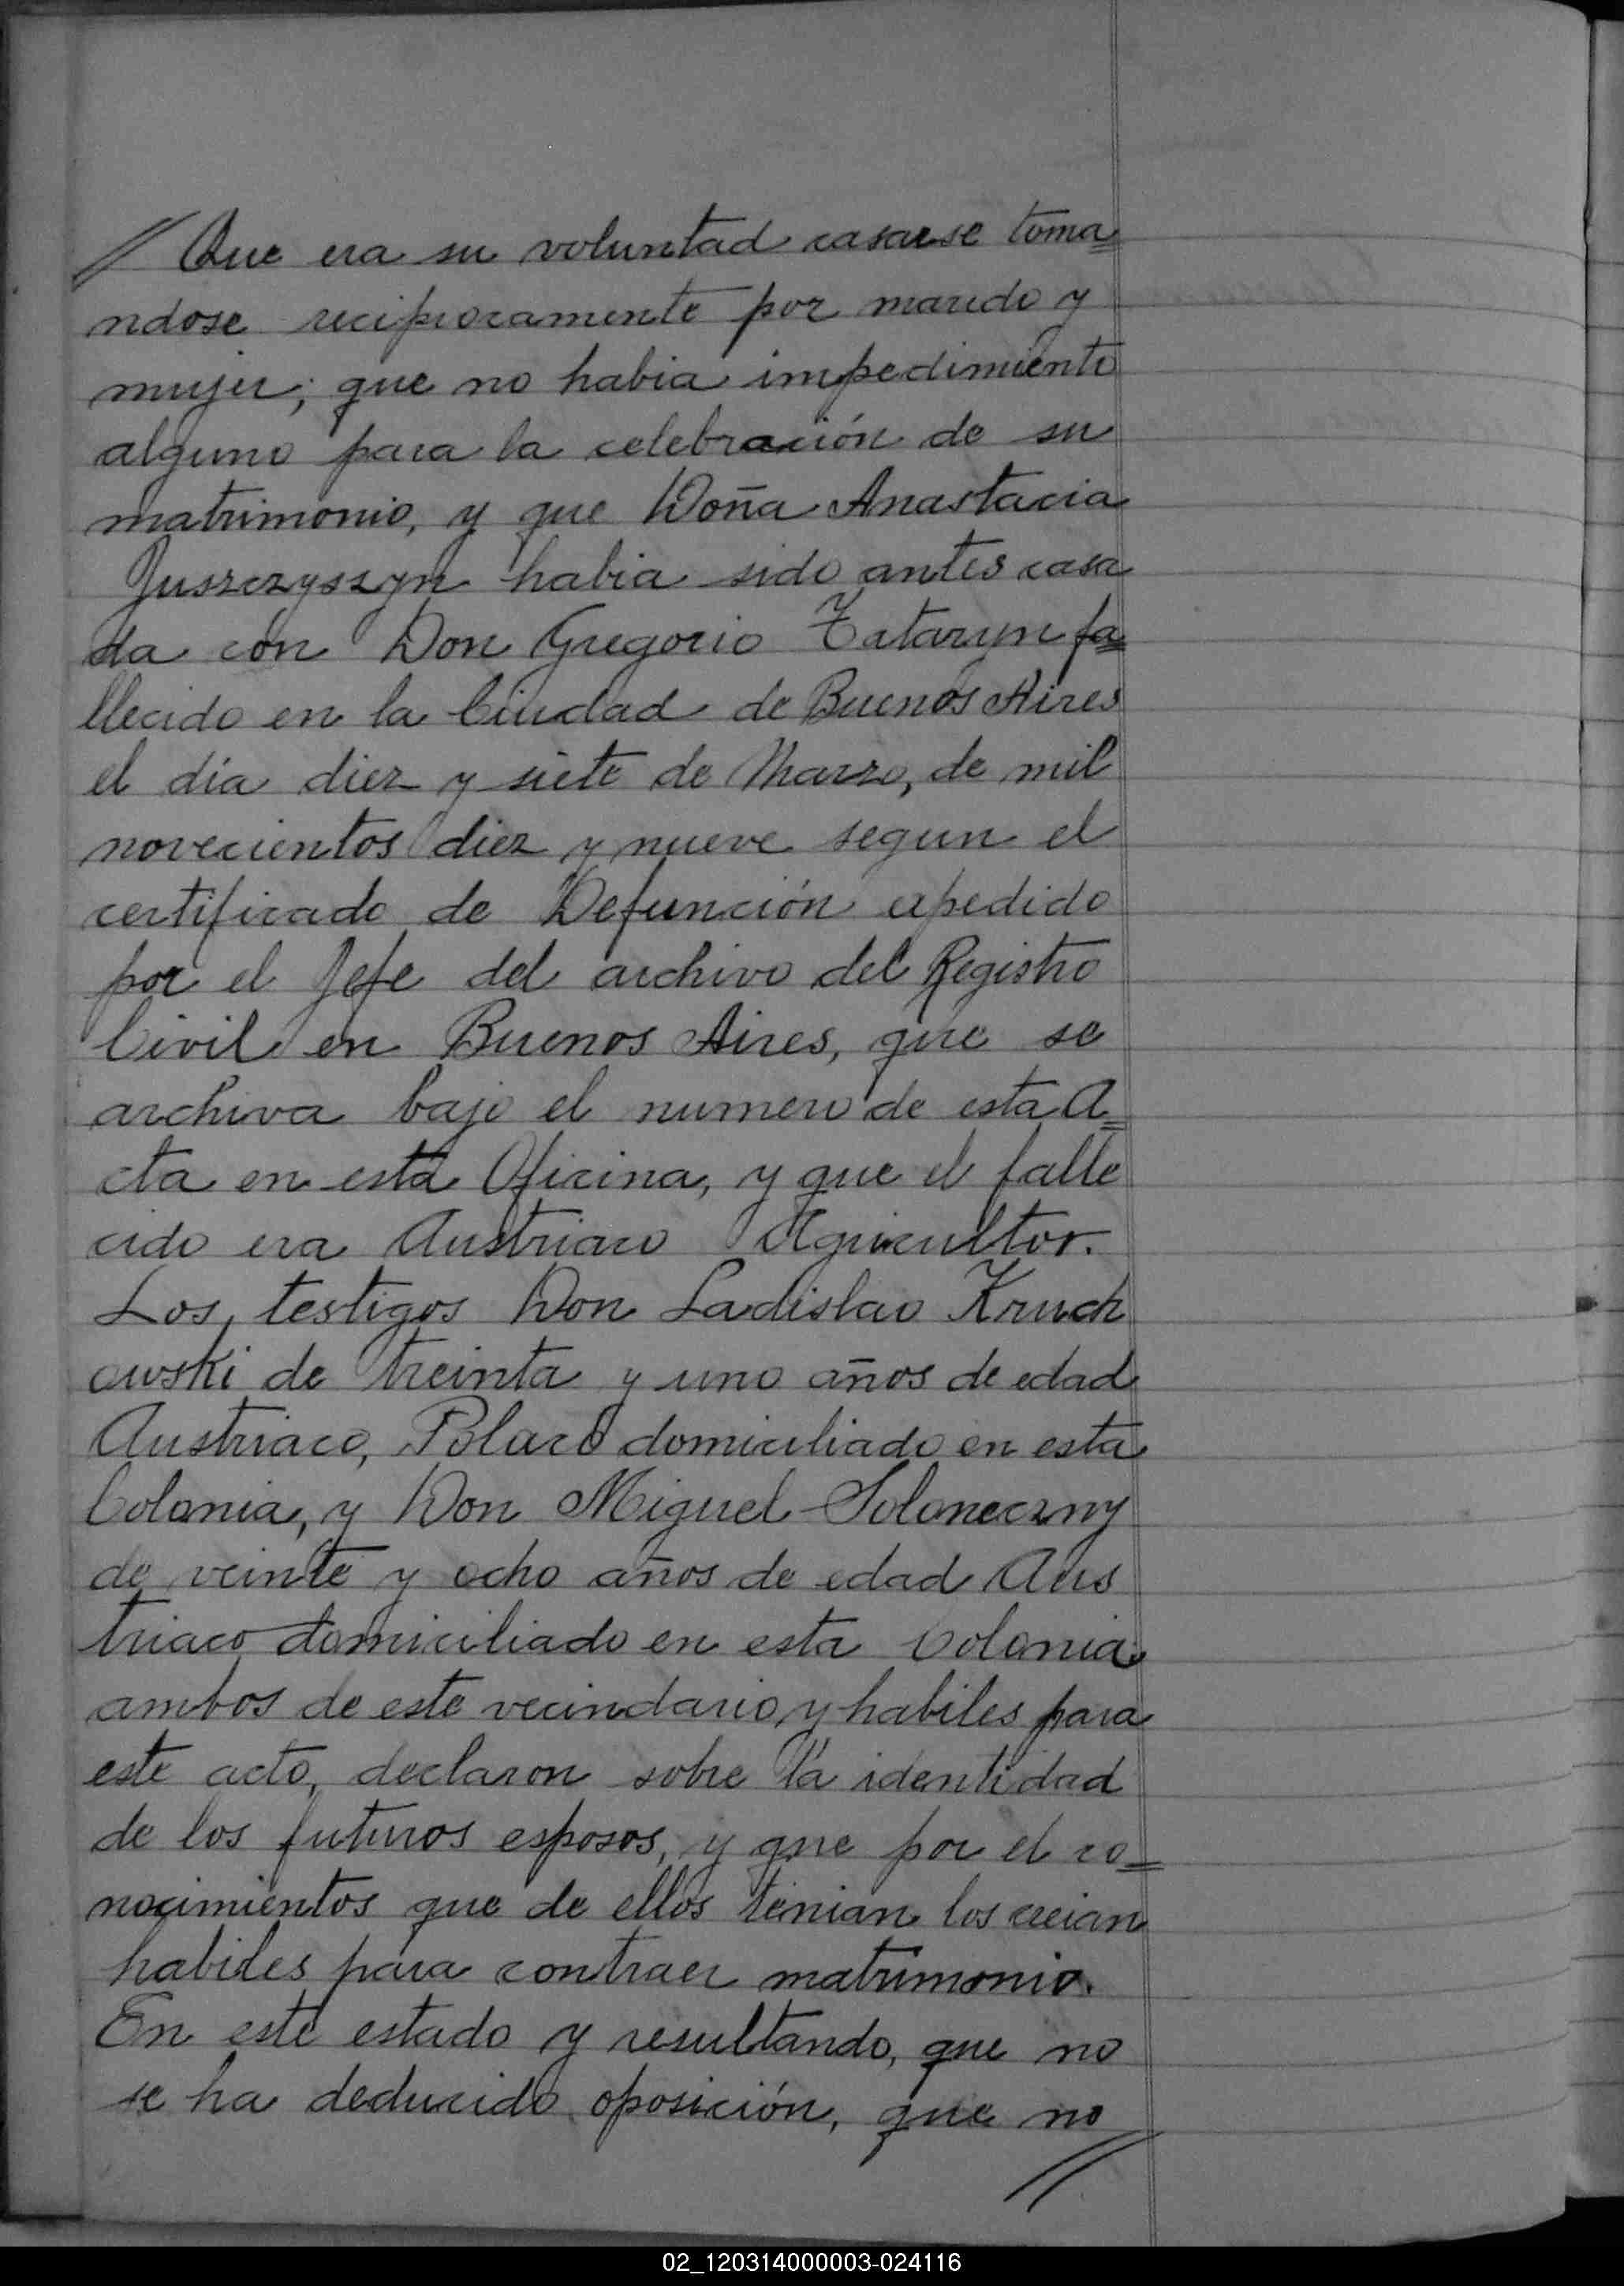 // Que era su voluntad casarse toma=
ndose reciprocamente por marido y
mujer; que no habia impedimiento
alguno para la celebración de su
matrimonio, y que Doña Anastacia
Juszczyszyn habia sido antes casa
da con Don Gregorio Tataryn fa=
llecido en la Ciudad de Buenos Aires
el día diez y siete de Marzo, de mil
novecientos diez y nueve segun el
certificado de Defunción expedido
por el Jefe del archivo del Registro
Civil en Buenos Aires, que se
archiva bajo el numero de esta A=
cta en esta Oficina, y que el falle
cido era Austriaco Agricultor.
Los testigos Don Ladislao Kruch
owski de treinta y uno años de edad
Austriaco, Polaco domiciliado en esta
Colonia, y Don Miguel Soloneczny
de veinte y ocho años de edad Aus
triaco domiciliado en esta Colonia
ambos de este vecindario y habiles para
este acto, declaron sobre la identidad
de los futuros esposos, y que por el co=
nocimientos que de ellos tenian los creian
habiles para contraer matrimonio.
En este estado y resultando, que no
se ha deducido oposición, que no
//
02_120314000003-024116